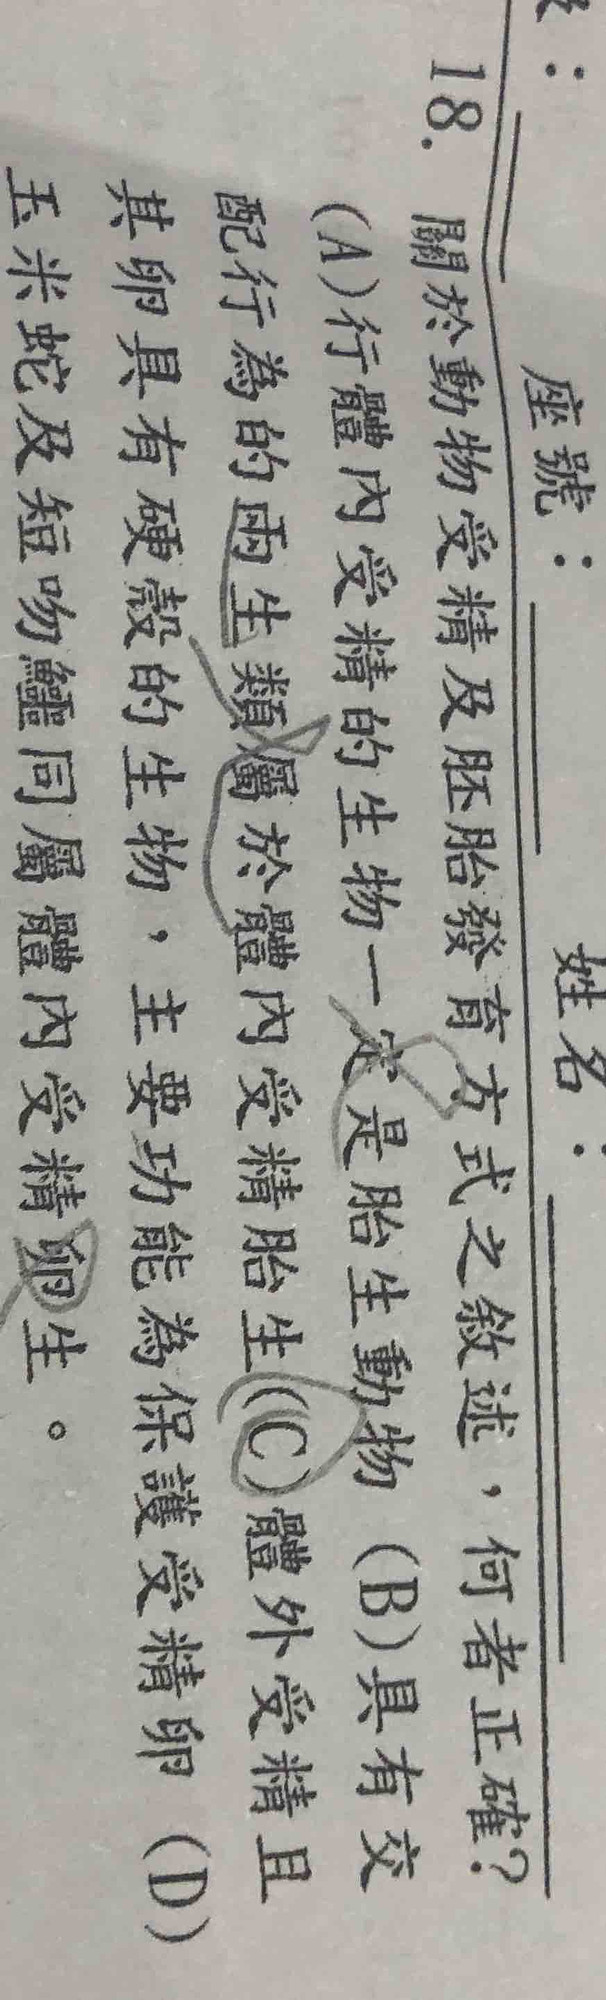 座號： 姓名：
18. 關於動物受精及胚胎發育方式之敘述，何者正確？
(A)行體內受精的生物一定是胎生動物 (B)具有交
配行為的兩生類屬於體內受精胎生(C)體外受精且
其卵具有硬殼的生物，主要功能為保護受精卵 (D)
玉米蛇及短吻鱷同屬體內受精卵生。